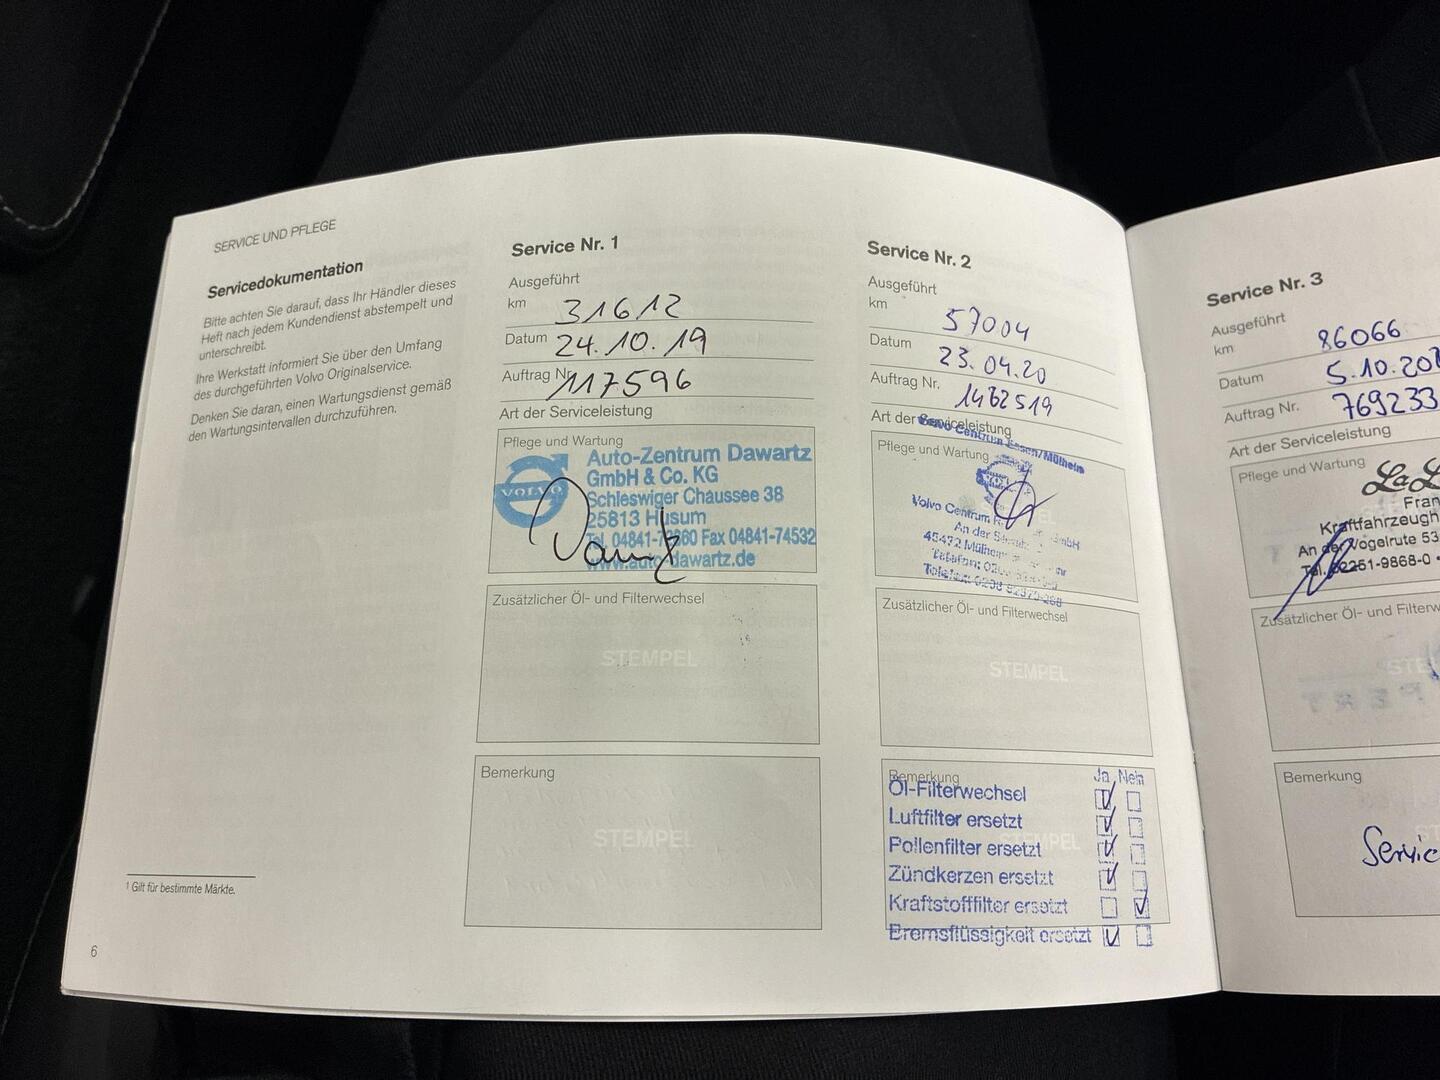 SERVICE UND PFLEGE
Servicedokumentation
Bitte achten Sie darauf, dass Ihr Händler dieses
Heft nach jedem Kundendienst abstempelt und
unterschreibt.
Ihre Werkstatt informiert Sie über den Umfang
des durchgeführten Volvo Originalservice.
Denken Sie daran, einen Wartungsdienst gemäß
den Wartungsintervallen durchzuführen.
1 Gilt für bestimmte Märkte.
6
Service Nr. 1
Ausgeführt
km 31612
Datum 24.10.19
Auftrag Nr. 117596
Art der Serviceleistung
Pflege und Wartung
VOLVO
Auto-Zentrum Dawartz
GmbH & Co. KG
Schleswiger Chaussee 38
25813 Husum
Fax 04841-74532
www.auto-dawartz.de
Zusätzlicher Öl- und Filterwechsel
STEMPEL
Bemerkung
STEMPEL
Service Nr. 2
Ausgeführt
km 57004
Datum 23.04.20
Auftrag Nr. 1462519
Art der Serviceleistung
Volvo Centrum Essen/Mülheim
Pflege und Wartung
Volvo Centrum GmbH
An der
45472 Mülheim
Telefon:
Telefax:
Zusätzlicher Öl- und Filterwechsel
STEMPEL
Bemerkung
Ja Nein
Öl-Filterwechsel
Luftfilter ersetzt
Pollenfilter ersetzt
Zündkerzen ersetzt
Kraftstofffilter ersetzt
Bremsflüssigkeit ersetzt
Service Nr. 3
Ausgeführt
km 86066
Datum 5.10.20
Auftrag Nr. 769233
Art der Serviceleistung
Pflege und Wartung
Fran
Kraftfahrzeugh
An der Vogelrute 53
Tel. 02251-9868-0
Zusätzlicher Öl- und Filterw
STE
Bemerkung
Servic